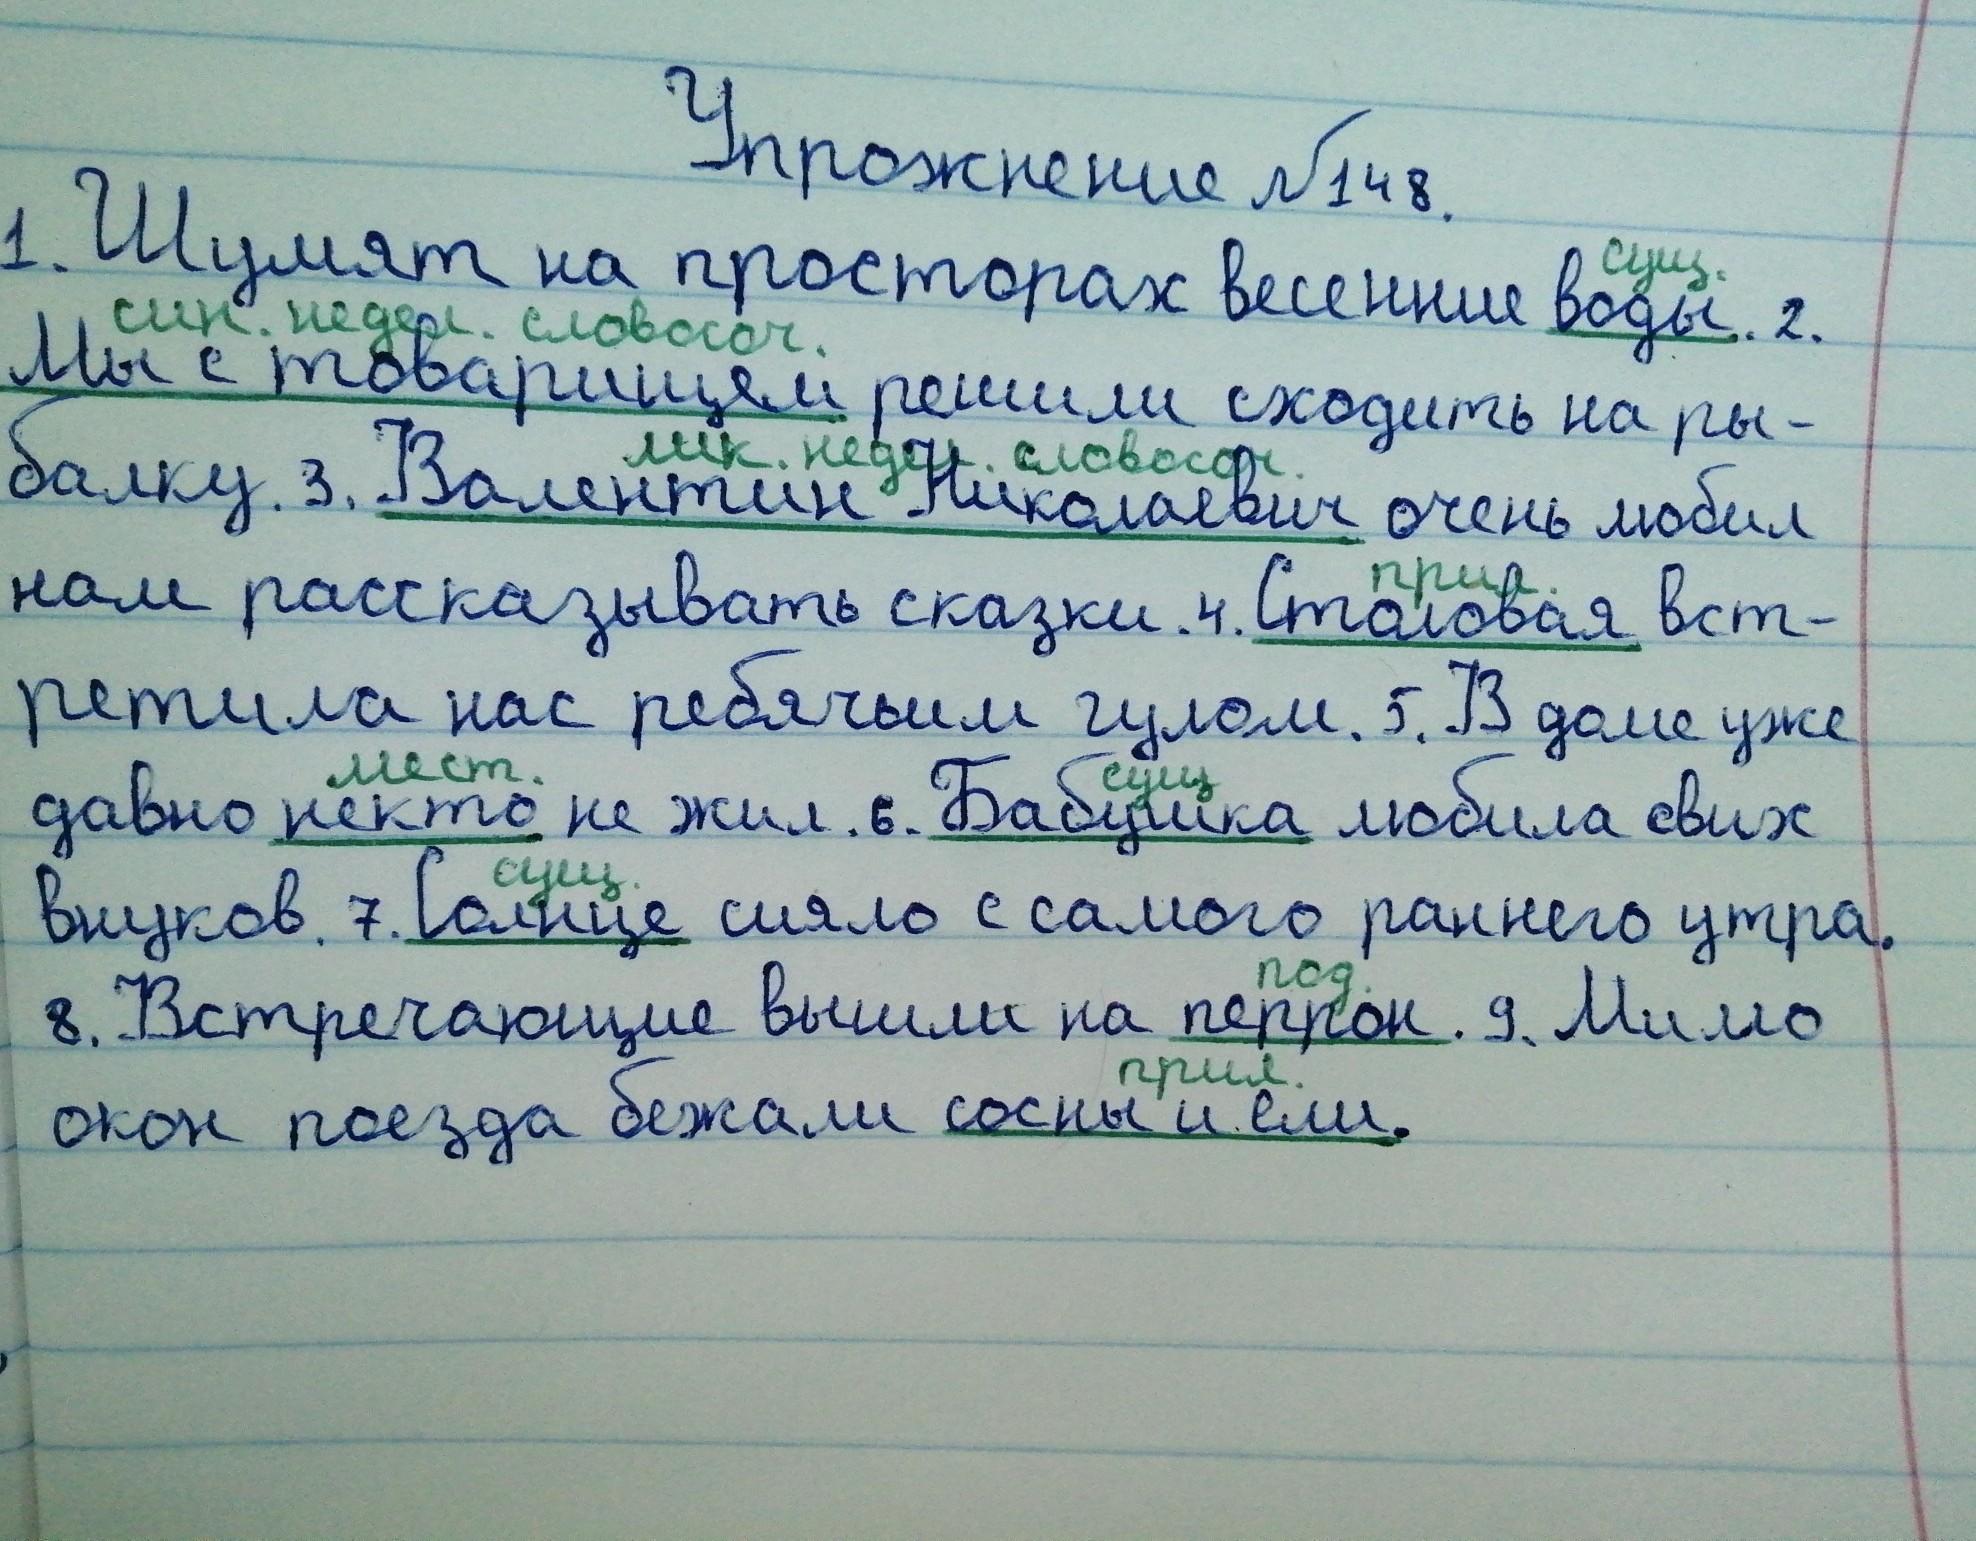 Упрожнение №148.
1. Шумят на просторах весенние воды. 2.
сущ.
син. недел. словосоч.
Мы с товарищем решили сходить на ры-
лик. недел. словосоч.
балку. 3. Валентин Николаевич очень любил
прил.
нам рассказывать сказки. 4. Столовая вст-
ретила нас ребячьим гулом. 5. В доме уже
мест.
сущ
давно некто не жил. 6. Бабушка любила свих
сущ.
внуков. 7. Солнце сияло с самого раннего утра.
под.
8. Встречающие вышли на перрон. 9. Мимо
прил.
окон поезда бежали сосны и ели.